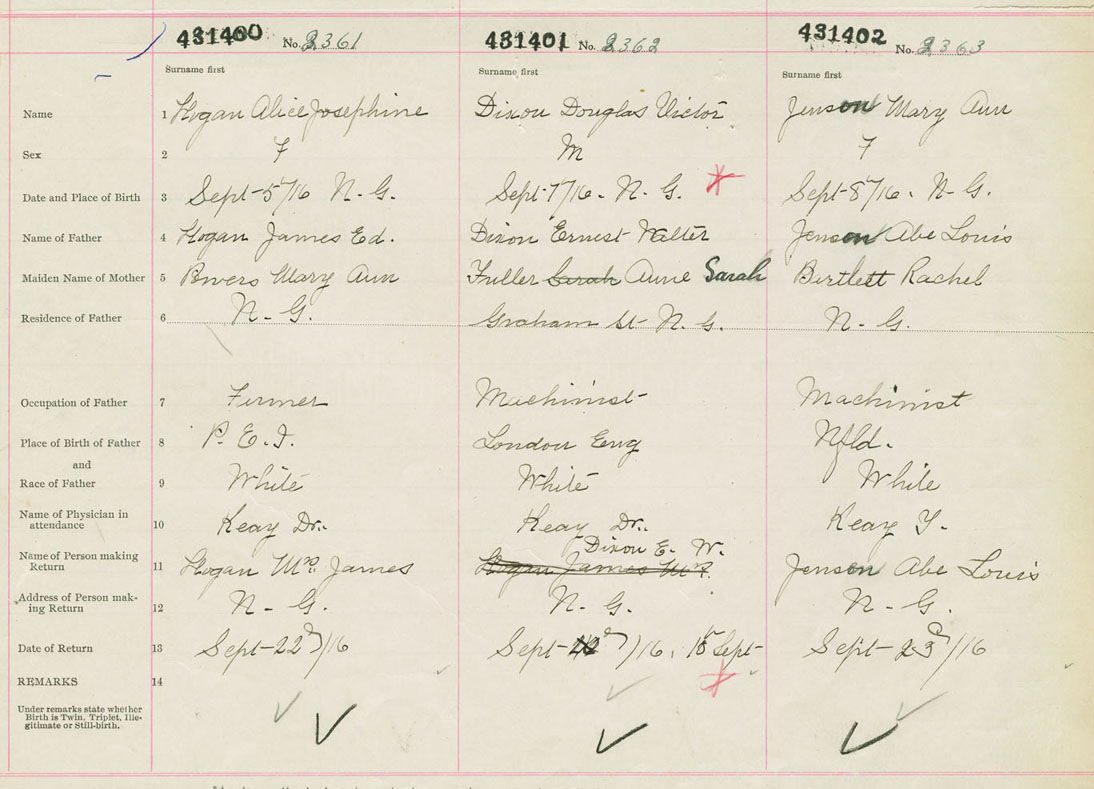 431400 No. 2361 431401 No. 2362 431402 No. 2363
Surname first Surname first Surname first
Name 1 Hogan Alice Josephine Dixon Douglas Victor Jenson Mary Ann
Sex 2 F M F
Date and Place of Birth 3 Sept-5/16 N-G. Sept-7/16. N.G. Sept-8/16. N-G.
Name of Father 4 Hogan James Ed. Dixon Ernest Walter Jenson Abe Louis
Maiden Name of Mother 5 Bowers Mary Ann Fuller Sarah Anne Sarah Bartlett Rachel
Residence of Father 6 N-G. Graham St-N.G. N-G.
Occupation of Father 7 Farmer Machinist Machinist
Place of Birth of Father 8 P.E.I. London Eng Nfld.
and
Race of Father 9 White White White
Name of Physician in
attendance 10 Keay Dr. Keay Dr. Keay
Dixon E. W.
Name of Person making
Return 11 Hogan Mrs. James Hogan James Mrs. Jenson Abe Louis
Address of Person mak-
ing Return 12 N-G. N-G. N-G.
Date of Return 13 Sept-22d/16 Sept- /16. 18 Sept- Sept-23d/16
REMARKS 14
Under remarks state whether
Birth is Twin, Triplet, Ille-
gitimate or Still-birth.